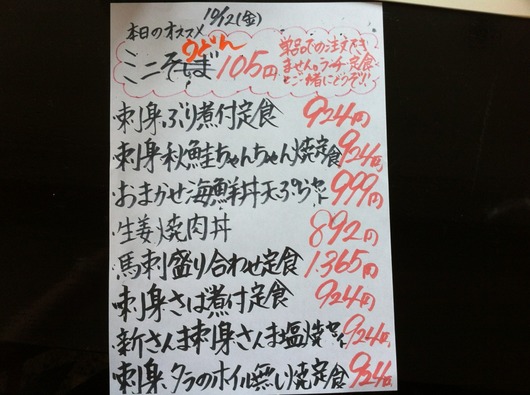 10/12(金)
本日のオススメ
うどん
ミニそば 105円
単品での注文でき
ません。ランチ定食
とご一緒にどうぞ!!
・刺身ぶり煮付定食 924円
・刺身秋鮭ちゃんちゃん焼定食 924円
・おまかせ海鮮丼天ぷらセット 999円
・生姜焼肉丼 892円
・馬刺盛り合わせ定食 1.365円
・刺身さば煮付定食 924円
・新さんま刺身さんま塩焼セット 924円
・刺身、タラのホイル蒸し焼定食 924円